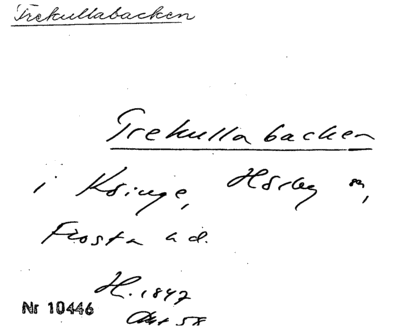 Trekullabacken
Trekulla backen
i Köinge, Hörby sn,
Frosta hd.
H. 1847
Nr 10446
Akt 58